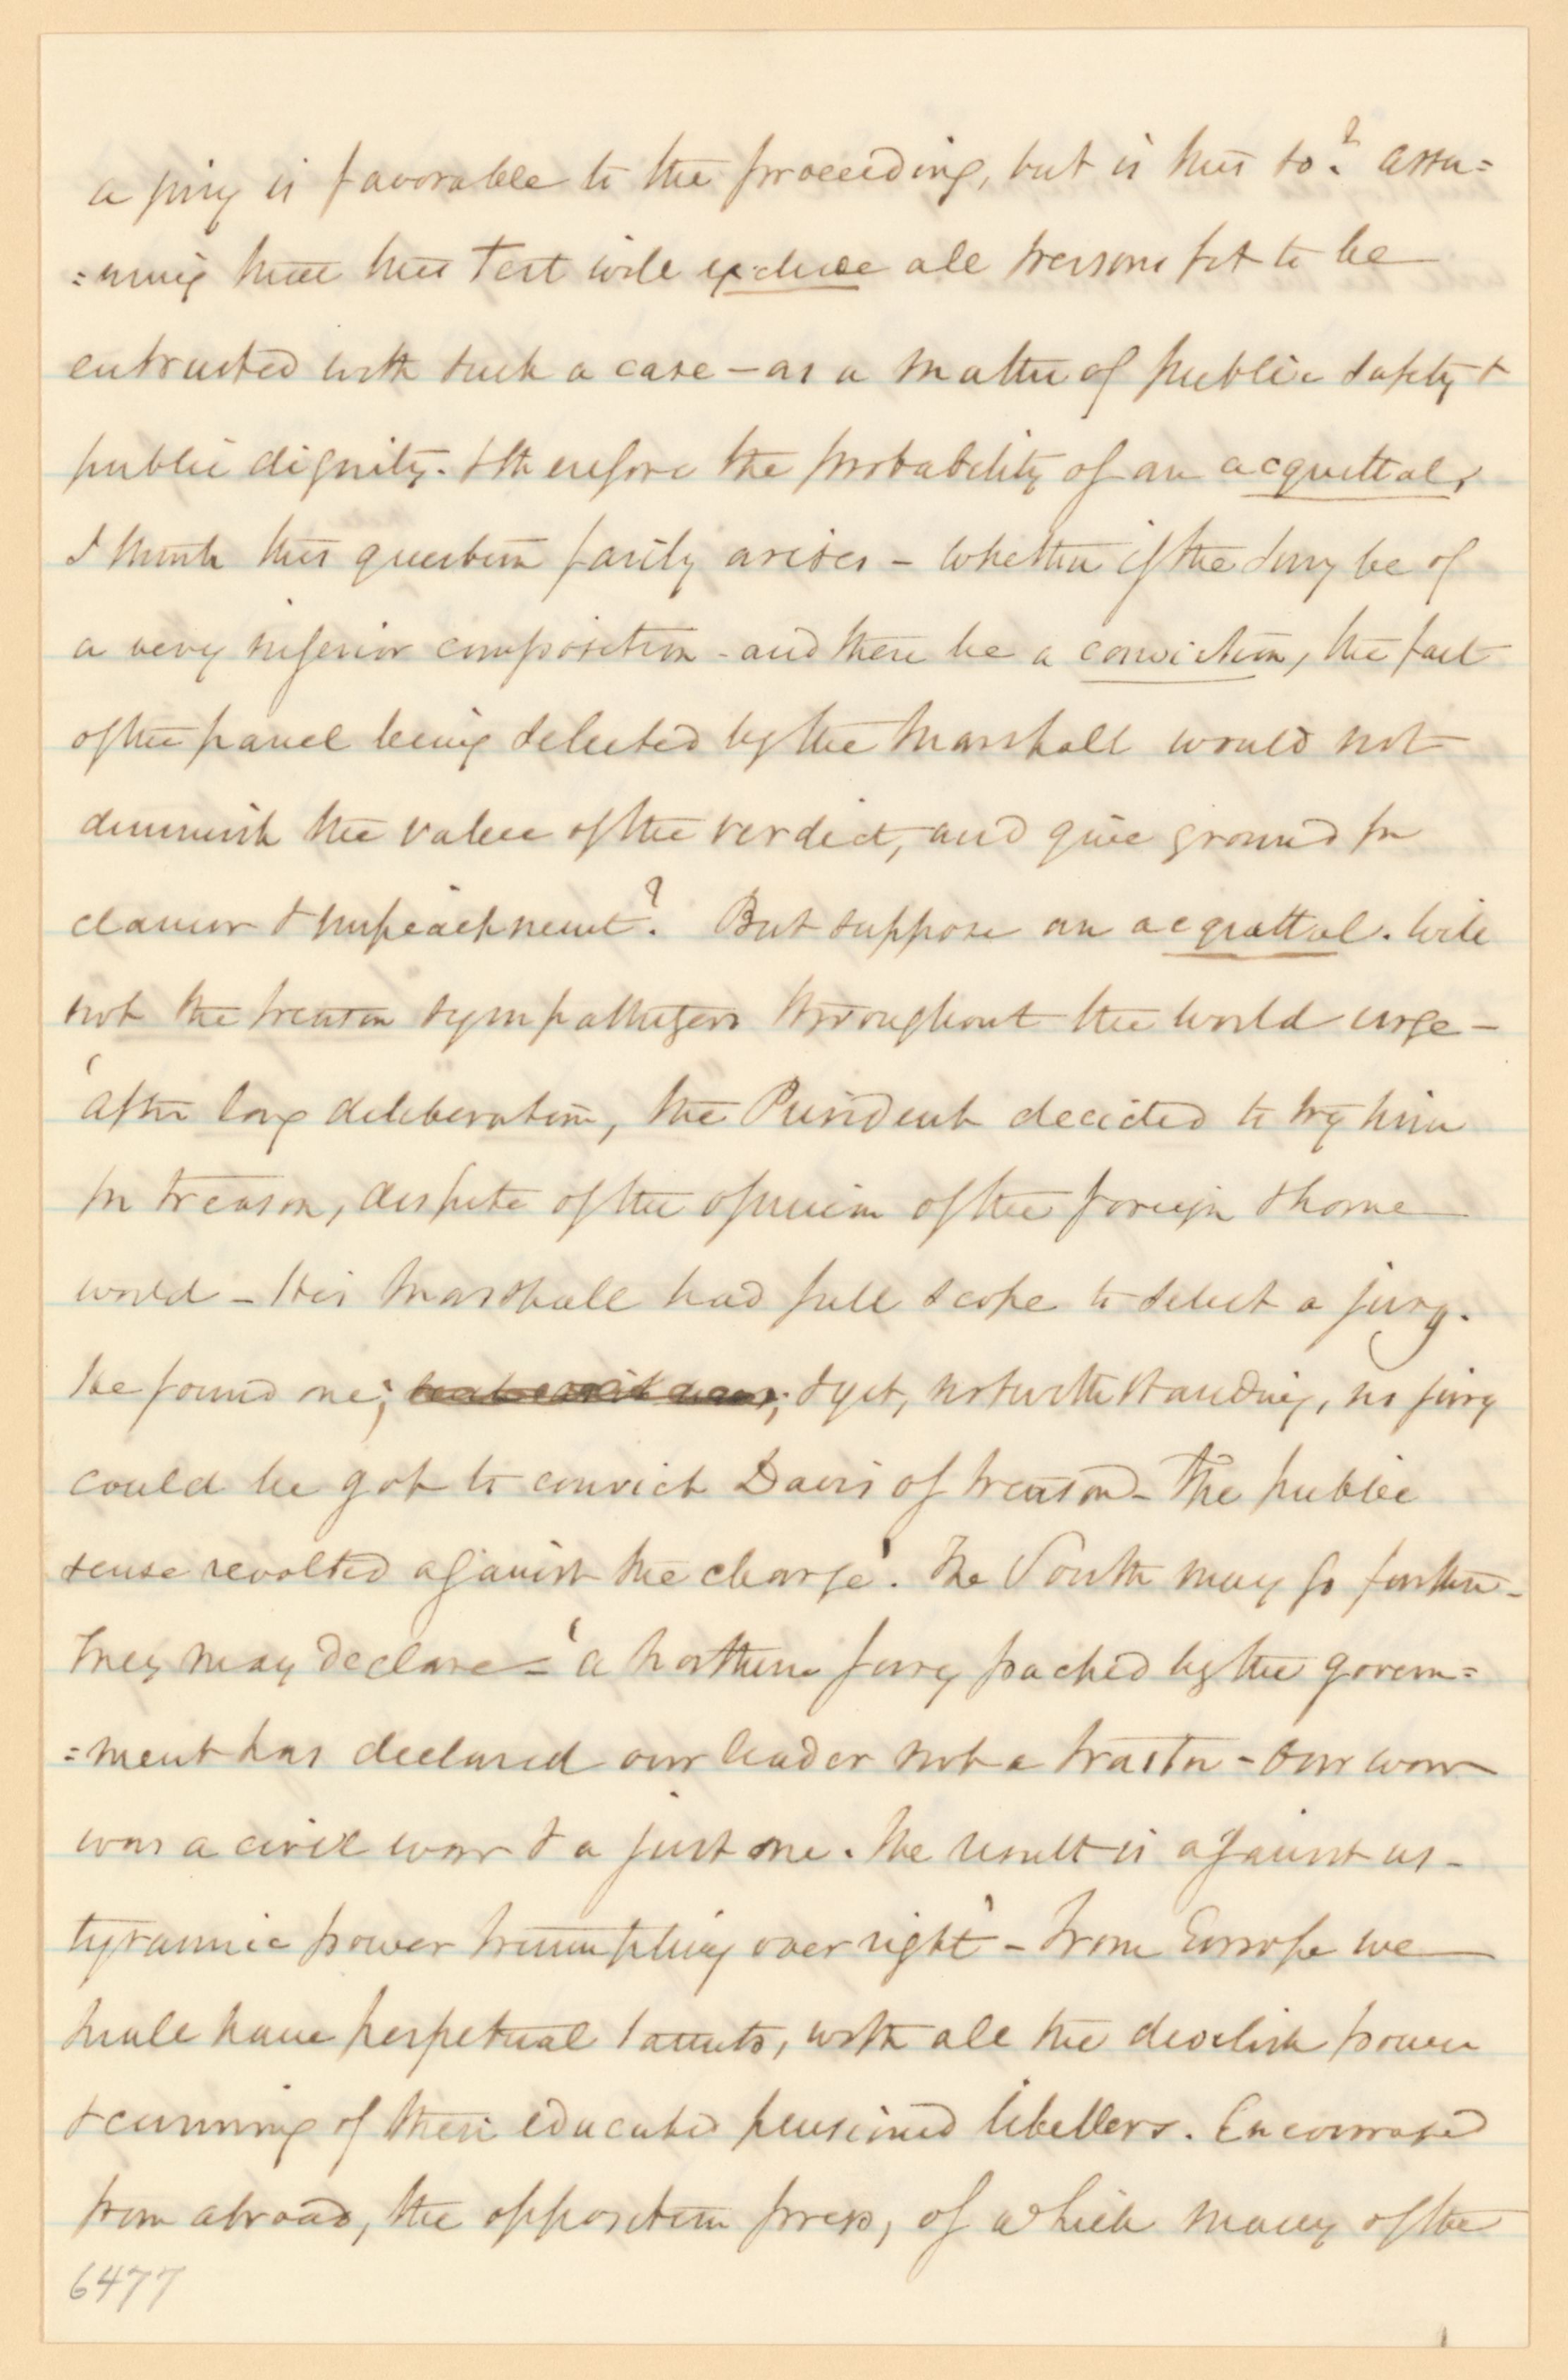 a jury is favorable to the proceeding, but is this so? assu=
=ming that this Test will exclude all persons fit to be
entrusted with such a case – as a matter of public safety &
public dignity. & therefore the probability of an acquittal,
I think this question fairly arises – whether if the Jury be of
a very inferior composition – and there be a conviction, the fact
of the panel being selected by the Marshall would not
diminish the value of the verdict, and give ground for
clamor & impeachment? But suppose an acquittal. Will
not the treason sympathizers throughout the world urge –
'after long deliberation, the President decided to try him
for treason, despite of the opinion of the foreign & home
world – His Marshall had full scope to select a jury.
He found one; & yet, notwithstanding, no jury
could be got to convict Davis of treason – The public
sense revolted against the charge'. The South may go further –
They may declare – 'a northern jury packed by the govern=
=ment has declared our leader not a traitor – Our war
was a civil war & a just one. The result is against us –
tyrannic power triumphing over right' – From Europe we
shall have perpetual taunts, with all the devilish power
& cunning of their educated pensioned libellers. Encouraged
from abroad, the opposition press, of which many of the
6477